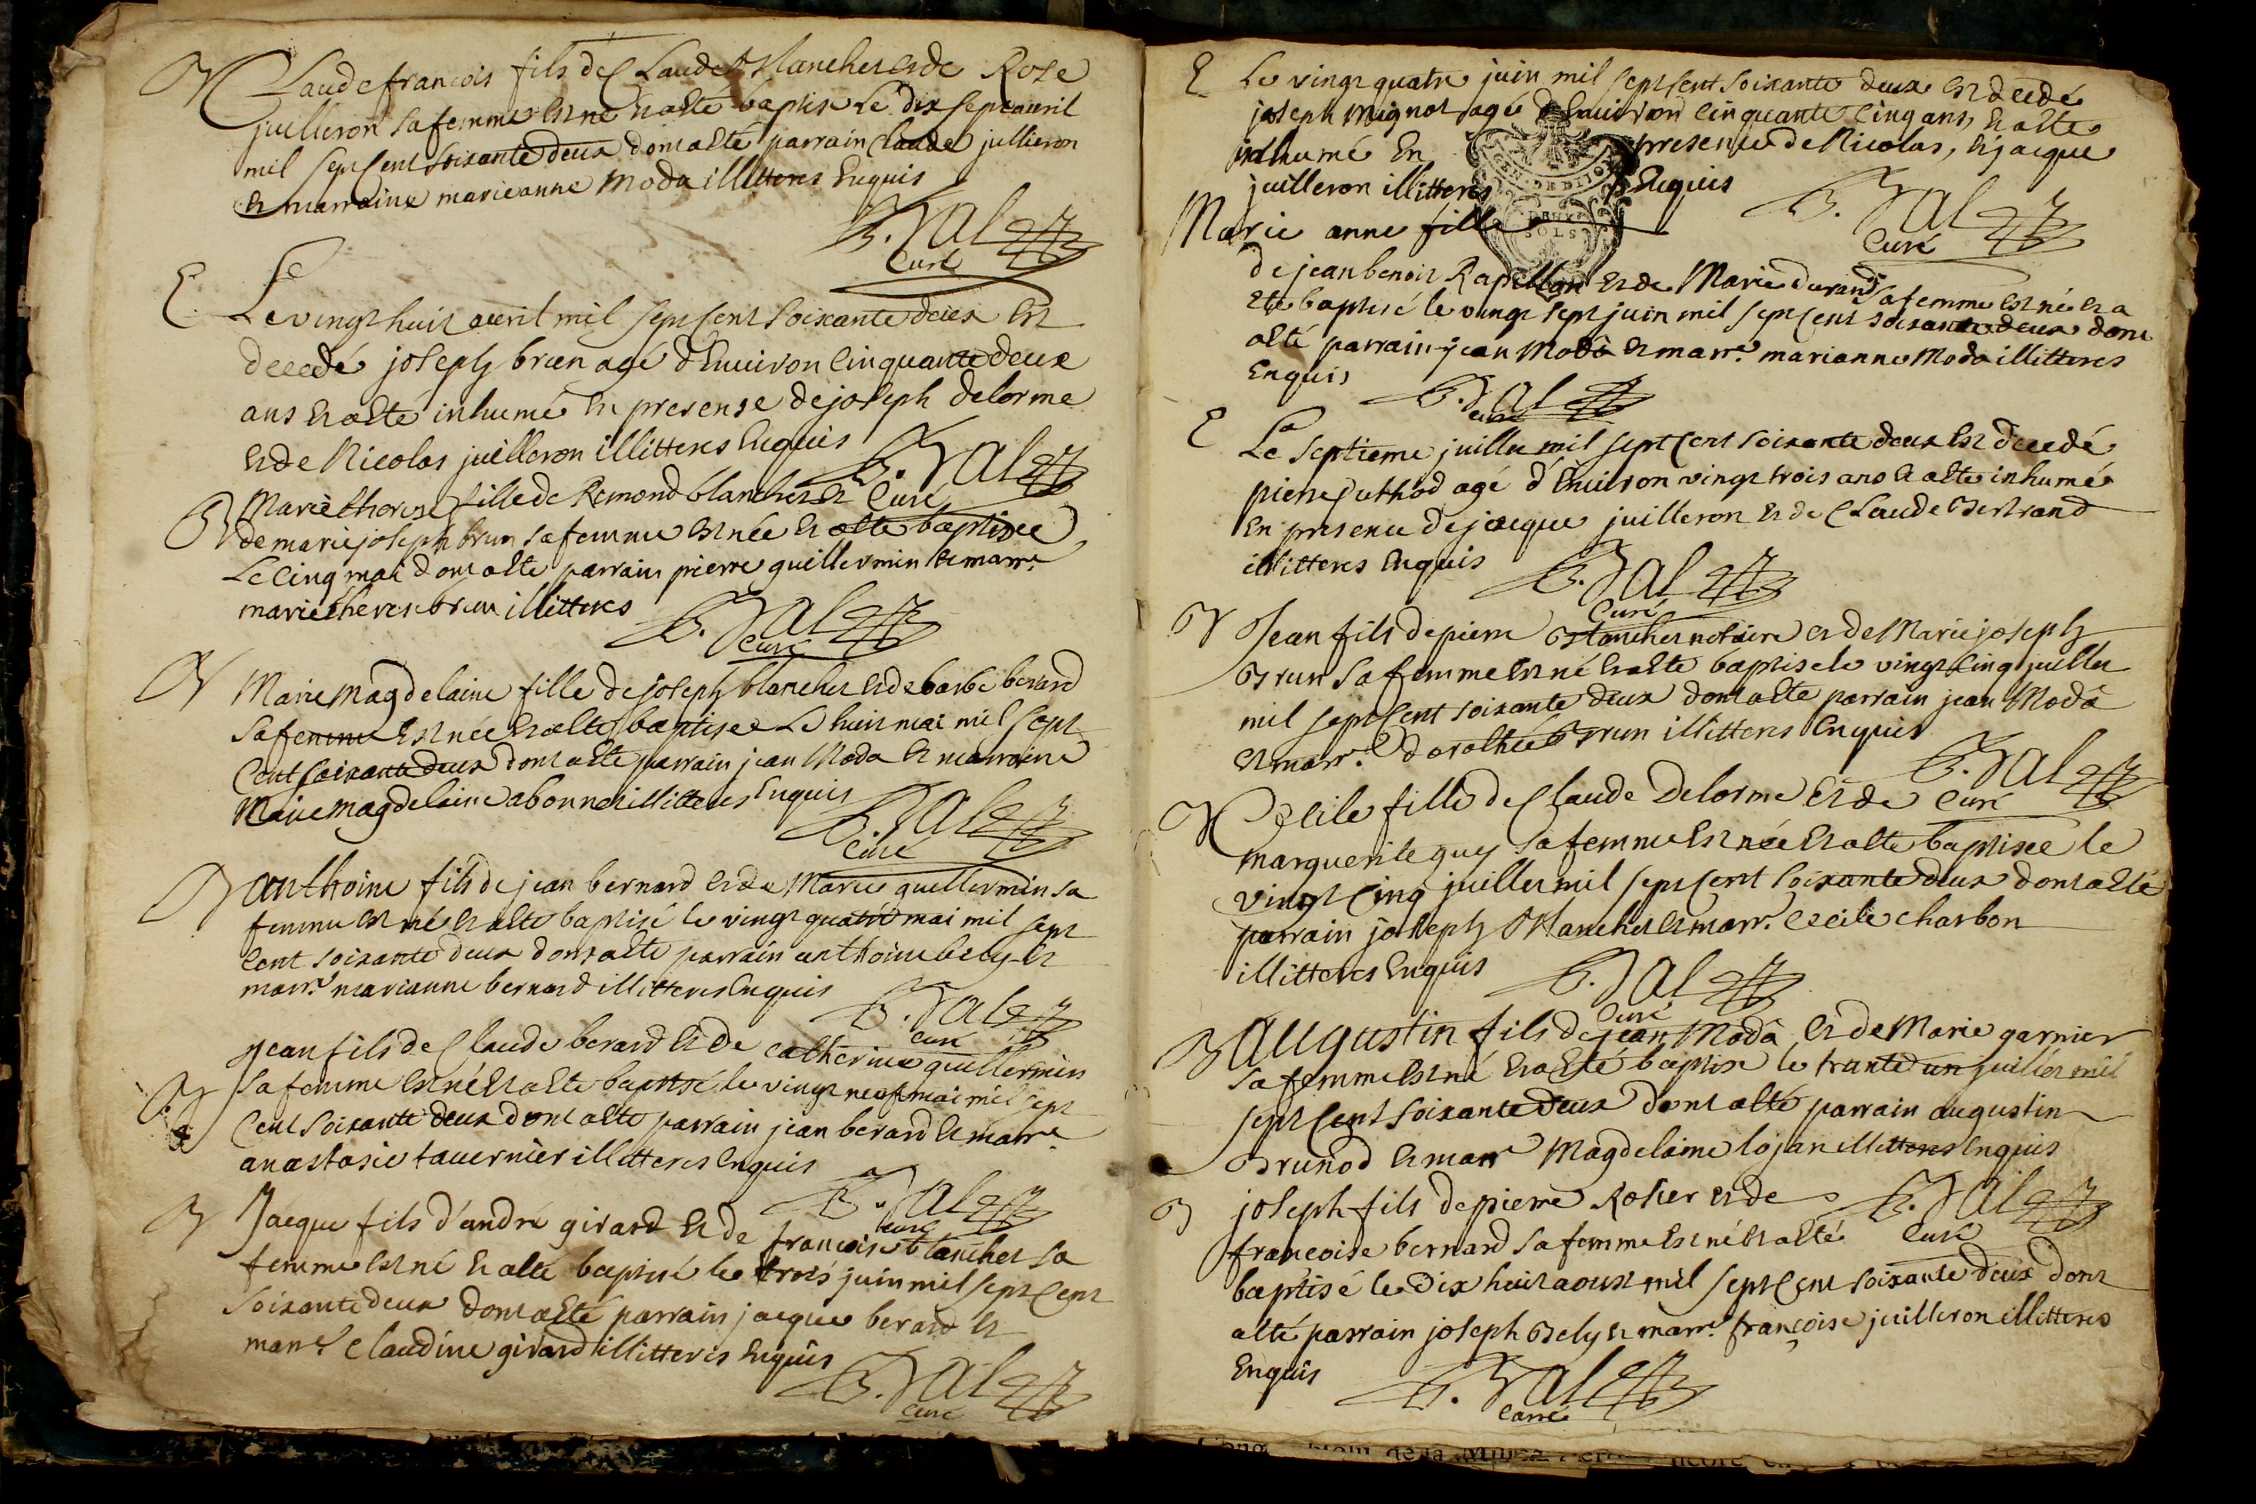 B Claude francois fils de Claude Blanchet et de Rose
juilleron sa femme est né et a esté baptise Le dix sept avril
mil sept Cent soixante deux dont a esté parrain Claude juilleron
et marraine marieanne Moda illitteres Enquis
Curé
E Le vingt huit avril mil sept Cent soixante deux est
decedé joseph brun agé d'Environ Cinquante deux
ans et a esté inhumé En presense de joseph delorme
et de Nicolas juilleron illitteres Enquis
Curé
B Marie therese fille de Remond blanchet et
de marie joseph brun sa femme est née et a esté baptisée
Le Cinq mai dont a esté parrain pierre guillermin et marr.e
marie therese brun illitteres
Curé
B Marie Magdelaine fille de joseph blanchet et de barbe berard
sa femme Est née et a esté baptisee Le huit mai mil sept
Cent soixante deux dont a esté parrain jean Moda et marraine
Marie Magdelaine abonnet illitteres Enquis
Curé
B anthoine fils de jean bernard et de Marie guillermin sa
femme est né et a esté baptisé le vingt quatre mai mil sept
Cent soixante deux dont a esté parrain anthoine bely et
marr.e marianne bernard illitteres Enquis
Curé
B Jean fils de Claude berard et de catherine guillermin
sa femme est né et a esté baptisé le vingt neuf mai mil sept
Cent soixante deux dont a esté parrain jean berard et marr.e
anastasie tavernier illitteres Enquis
Curé
B Jacque fils d'andré girard et de francoise blanchet sa
femme est né et a esté baptisé le trois juin mil sept Cent
soixante deux dont a esté parrain jacque berard et
marr.e Claudine girard illitteres Enquis
Curé
E Le vingt quatre juin mil sept Cent soixante deux est decedé
joseph mignot agé d'Environ Cinquante Cinq ans, et a esté
inhumé En presence de Nicolas, et jacque
juilleron illitteres Enquis
GEN. DE DIJON
DEUX
SOLS
Curé
Marie anne fille
de jean benoit Rapillon et de Marie durand sa femme est né et a
été baptisé le vingt sept juin mil sept Cent soixante deux dont
a esté parrain jean Moda et marr.e marianne Moda illitteres
Enquis
Curé
E Le septieme juillet mil sept Cent soixante deux Est decedé
pierre Cuthod agé d'Environ vingt trois ans et a esté inhumé
En presence de jacque juilleron et de Claude Bertrand
illitteres Enquis
Curé
B Jean fils de pierre Blanchet notaire et de Marie joseph
Brun sa femme Est né et a esté baptisé le vingt Cinq juillet
mil sept Cent soixante deux dont a esté parrain jean Moda
et marr.e dorothée Brun illitteres Enquis
Curé
B Cecile fille de Claude Delorme et de
marguerite guy sa femme Est née et a esté baptisée le
vingt Cinq juillet mil sept Cent soixante deux dont a esté
parrain joseph Blanchet et marr.e Cecile Charbon
illitteres Enquis
Curé
B Augustin fils de jean Moda et de Marie garnier
sa femme Est né et a esté baptisé le trante un juillet mil
sept Cent soixante deux dont a esté parrain augustin
Brunod et marr.e Magdelaine lojan illitteres Enquis
Curé
B joseph fils de pierre Rosier et de
francoise bernard sa femme Est né et a esté
baptisé le Dix huit aoust mil sept Cent soixante deux dont
a esté parrain joseph Bely et marr.e françoise juilleron illitteres
Enquis
Curé